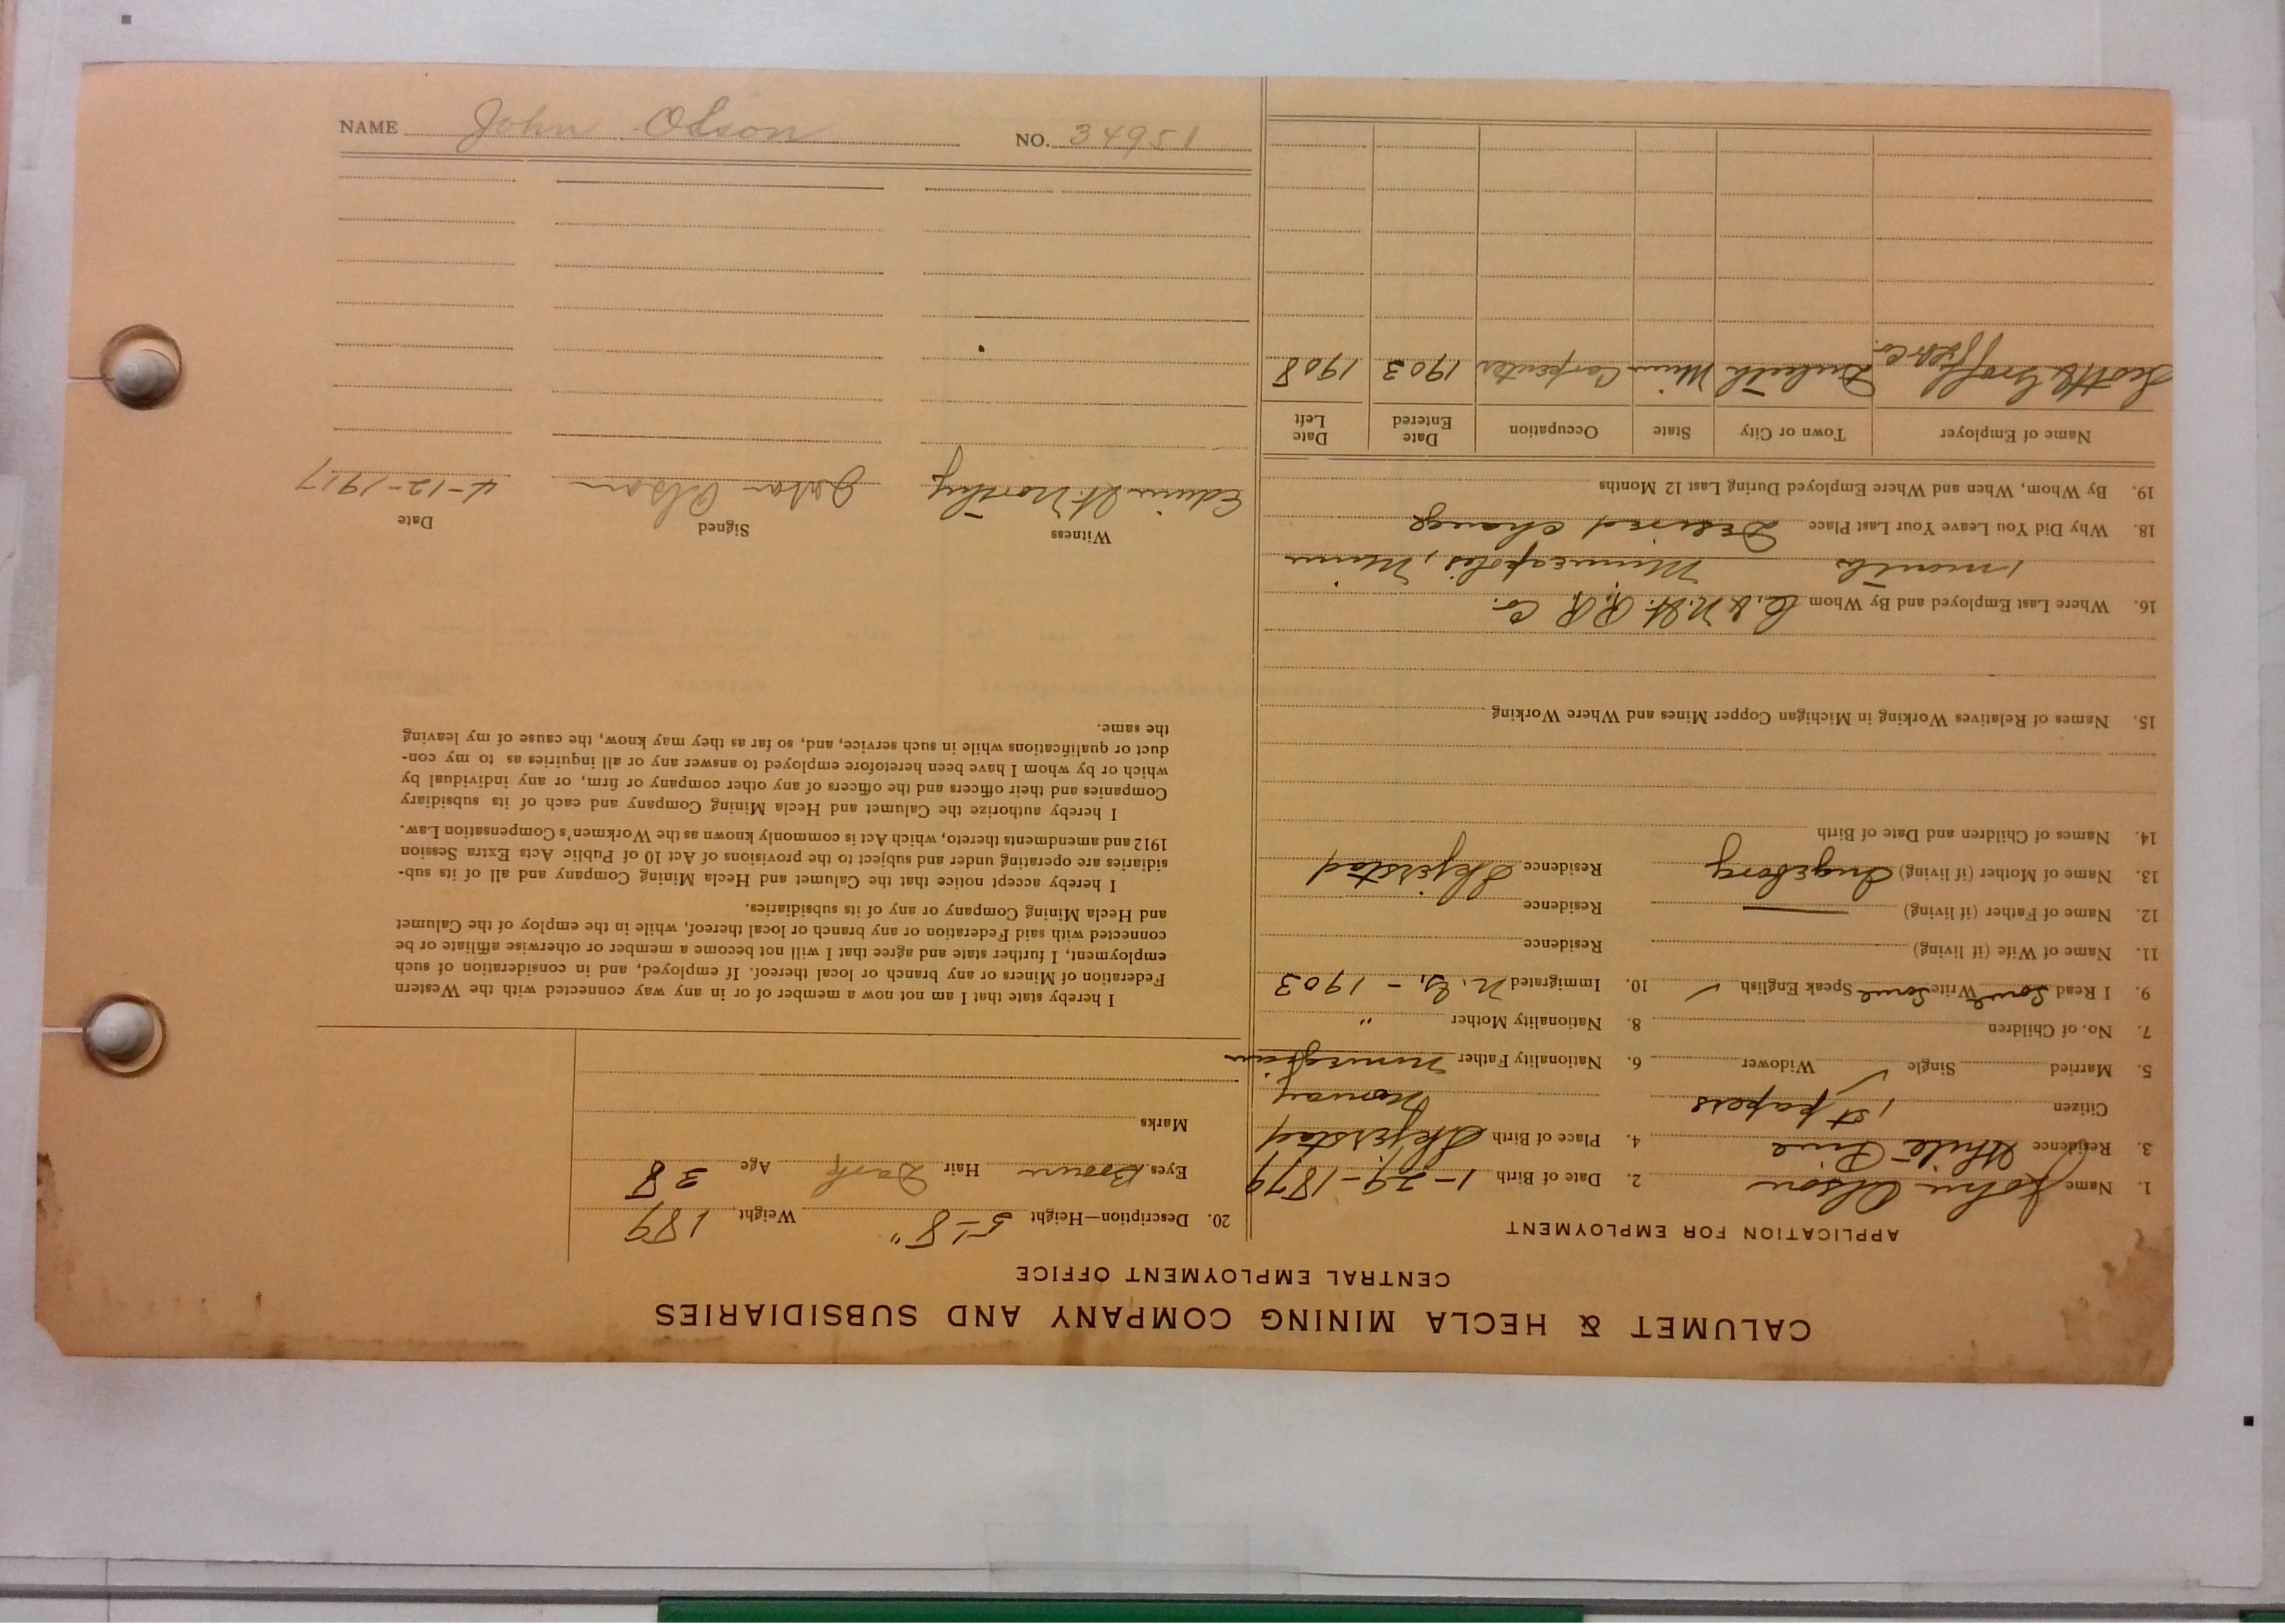 CALUMET & HECLA MINING COMPANY AND SUBSIDIARIES
CENTRAL EMPLOYMENT OFFICE
APPLICATION FOR EMPLOYMENT
1. Name John Olson 2. Date of Birth 1-29-1879
3. Residence White Pine 4. Place of Birth Skjerstad
Citizen 1st papers Norway
5. Married Single ✓ Widower 6. Nationality Father Norwegian
7. No. of Children 8. Nationality Mother "
9. I Read Some Write Some Speak English ✓ 10. Immigrated N.Y. - 1903
11. Name of Wife (if living) Residence
12. Name of Father (if living) — Residence
13. Name of Mother (if living) Ingeborg Residence Skjerstad
14. Names of Children and Date of Birth
15. Names of Relatives Working in Michigan Copper Mines and Where Working
16. Where Last Employed and By Whom C. & N.W. R.R. Co.
1 month Minneapolis, Minn
18. Why Did You Leave Your Last Place Desired change
19. By Whom, When and Where Employed During Last 12 Months
Name of Employer Town or City State Occupation Date Entered Date Left
Scott & Graff Duluth Minn Carpenter 1903 1908
Co.
20. Description—Height 5-8" Weight 189
Eyes Brown Hair Dark Age 38
Marks
I hereby state that I am not now a member of or in any way connected with the Western
Federation of Miners or any branch or local thereof. If employed, and in consideration of such
employment, I further state and agree that I will not become a member or otherwise affiliate or be
connected with said Federation or any branch or local thereof, while in the employ of the Calumet
and Hecla Mining Company or any of its subsidiaries.
I hereby accept notice that the Calumet and Hecla Mining Company and all of its sub-
sidiaries are operating under and subject to the provisions of Act 10 of Public Acts Extra Session
1912 and amendments thereto, which Act is commonly known as the Workmen's Compensation Law.
I hereby authorize the Calumet and Hecla Mining Company and each of its subsidiary
Companies and their officers and the officers of any other company or firm, or any individual by
which or by whom I have been heretofore employed to answer any or all inquiries as to my con-
duct or qualifications while in such service, and, so far as they may know, the cause of my leaving
the same.
Witness Signed Date
Edwin John Olson 4-12-1917
NAME John Olson NO. 34951